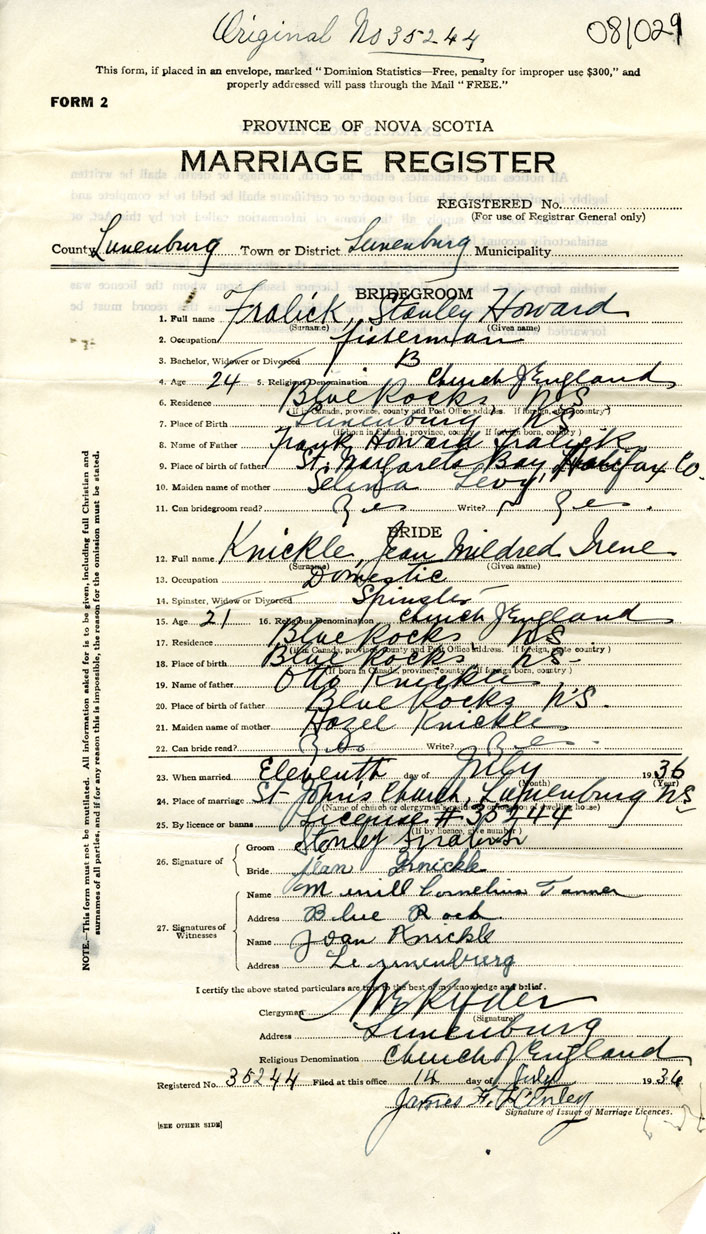 Original No 35244
081029
This form, if placed in an envelope, marked "Dominion Statistics—Free, penalty for improper use $300," and
properly addressed will pass through the Mail "FREE."
FORM 2
PROVINCE OF NOVA SCOTIA
MARRIAGE REGISTER
REGISTERED No.
(For use of Registrar General only)
County Lunenburg Town or District Lunenburg Municipality
BRIDEGROOM
1. Full name Fralick, Stanley Howard
(Surname) (Given name)
2. Occupation fisterman
3. Bachelor, Widower or Divorced B
4. Age 24 5. Religious Denomination Church of England
6. Residence Blue Rocks, N.S
(If in Canada, province, county and Post Office address. If foreign, state country)
7. Place of Birth Lunenburg, N.S
(If born in Canada, province, county. If foreign born, country)
8. Name of Father Frank Howard Fralick
9. Place of birth of father St. Margarets Bay, Halifax Co.
10. Maiden name of mother Selima Levy
11. Can bridegroom read? Yes Write? Yes.
BRIDE
12. Full name Knickle, Jean Mildred Irene
(Surname) (Given name)
13. Occupation Domestic
14. Spinster, Widow or Divorced Spinster
15. Age 21 16. Religious Denomination Church of England
17. Residence Blue Rocks, N.S.
(If in Canada, province, county and Post Office address. If foreign, state country)
18. Place of birth Blue Rocks, N.S.
(If born in Canada, province, county. If foreign born, country)
19. Name of father Otto Knickle
20. Place of birth of father Blue Rocks N.S.
21. Maiden name of mother Hazel Knickle
22. Can bride read? Yes Write? Yes.
23. When married Eleventh day of July 1936
(Month) (Year)
24. Place of marriage St. John's Church, Lunenburg N.S
(Name of church or clergyman's residence or situation of dwelling house)
25. By licence or banns License # 35244
(If by licence, give number)
26. Signature of
Groom Stanley Fralick
Bride Jean Knickle
27. Signatures of Witnesses
Name Cornelius Tanner
Address Blue Rock
Name Joan Knickle
Address Lunenburg
I certify the above stated particulars are true to the best of my knowledge and belief.
Clergyman Ryder
(Signature)
Address Lunenburg
Religious Denomination Church of England
Registered No. 35244 Filed at this office 14 day of July 1936
James F.
Signature of Issuer of Marriage Licences.
[SEE OTHER SIDE]
NOTE.—This form must not be mutilated. All information asked for is to be given, including full Christian and
surnames of all parties, and if for any reason this is impossible, the reason for the omission must be stated.